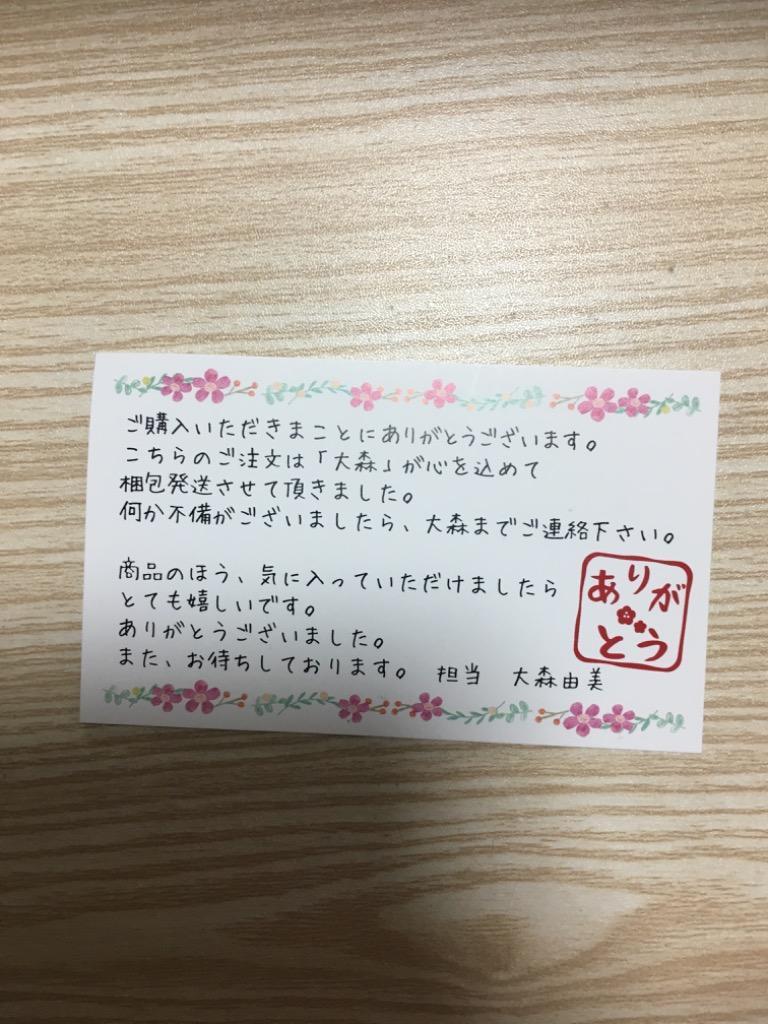 ご購入いただきまことにありがとうございます。
こちらのご注文は「大森」が心を込めて
梱包発送させて頂きました。
何か不備がございましたら、大森までご連絡下さい。
商品のほう、気に入っていただけましたら
とても嬉しいです。
ありがとうございました。
また、お待ちしております。 担当 大森由美
ありが
とう